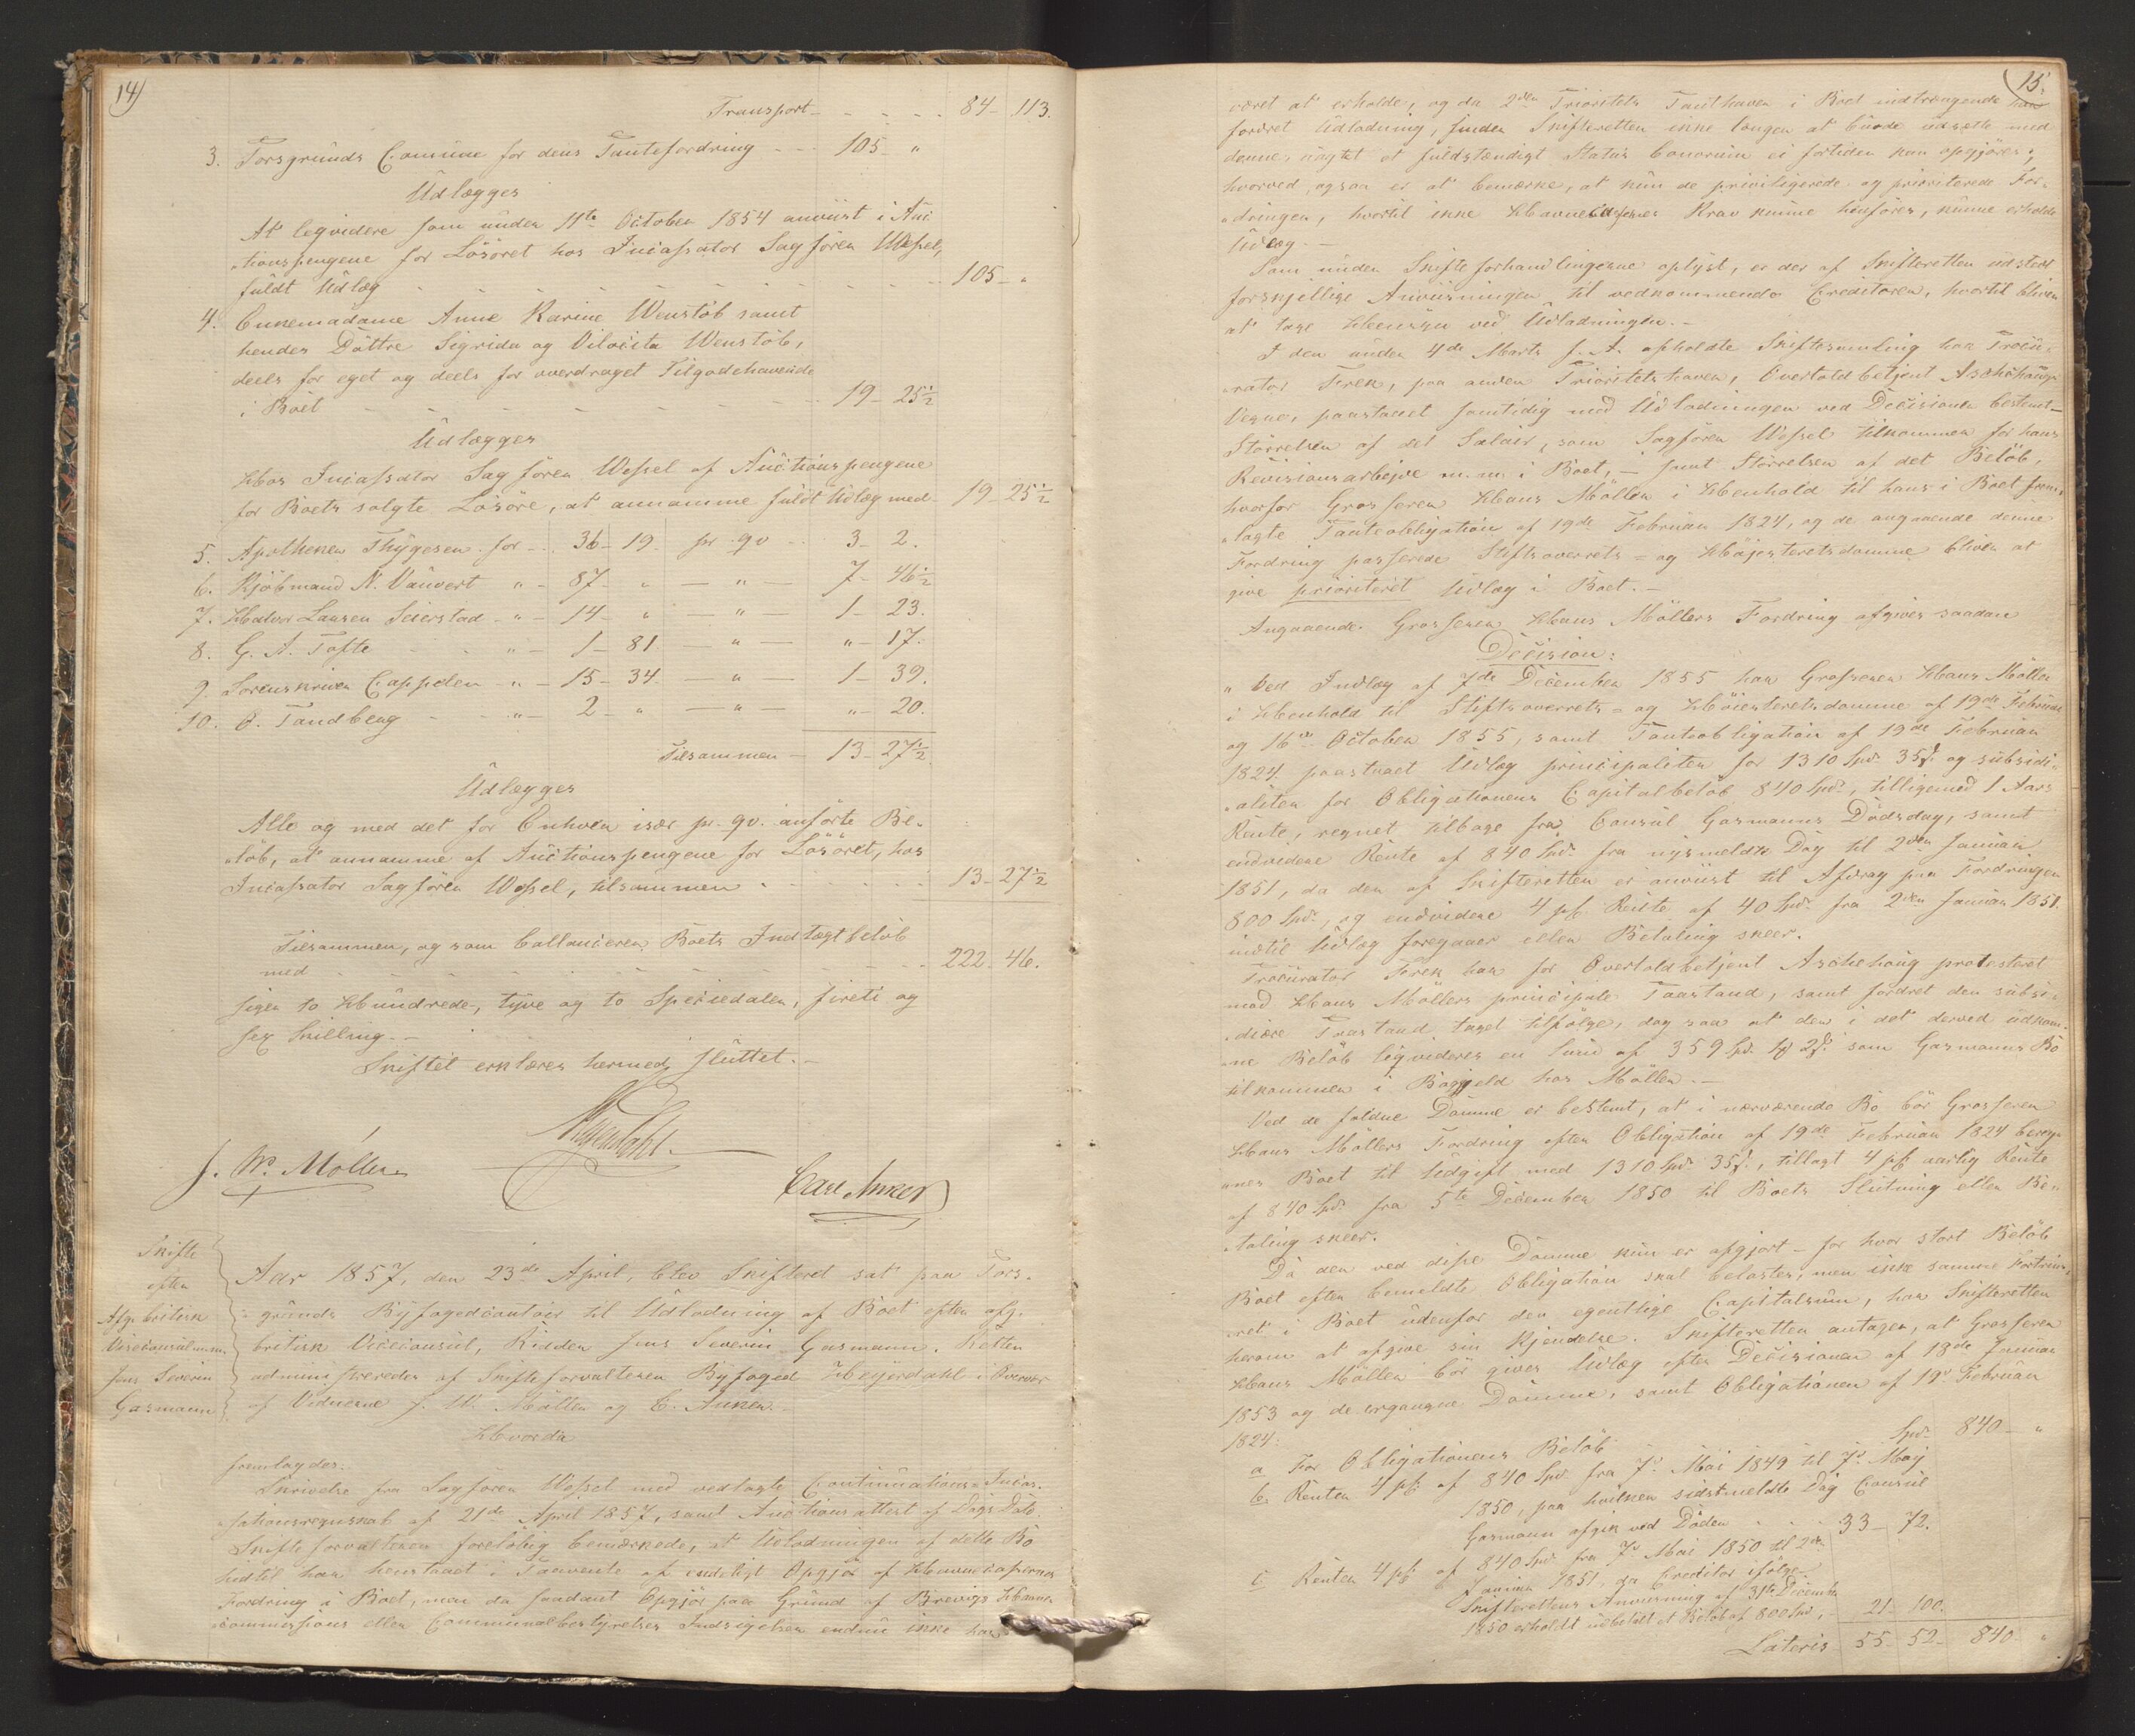 14)
Transport - - - - - 84 - 113.
3. Porsgrunds Comune for dens Pantefordring - - - 105 "
Udlægges
At liqvidere som under 11te October 1854 anviist i Auc-
tionspengene for Løsøret hos Incassator Sagfører Wessel,
fuldt Udlæg - - - - - - - - - 105 - "
4. Enkemadame Anne Karine Wenstøb samt
hendes Døttre Sigride og Vilocita Wenstøb,
deels for eget og deels for overdraget Tilgodehavende
i Boet - - - - - - - - 19 - 25½
Udlægges
Hos Incassator Sagfører Wessel af Auctionspengene
for Boets solgte Løsøre, at annamme fuldt Udlæg med - 19 - 25½
5. Apotheker Thygesen for - - 36 - 19 pr. qv - - 3 - 2.
6. Kjøbmand N. Vauvert " - 87 - " - " - 7 - 46½
7. Halvor Larsen Seierstad - " - 14 - " - " - 1 - 23.
8. G. A. Tofte - - " - 1 - 81 - " - " - 17.
9. Sorenskriver Cappelen " - 15 - 34 - " - 1 - 39.
10. O. Tandberg - - " - 2 - " - " - " - 20.
Tilsammen - 13 - 27½
Udlægges
Alle og med det for Enhver især pr. qv. anførte Be-
løb, at annamme af Auctionspengene for Løsøret, hos
Incassator Sagfører Wessel, tilsammen - - - - - 13 - 27½
Tilsammen, og som ballancerer Boets Indtægtbeløb
med - - - - - - - - - 222 - 46.
siger to Hundrede, tyve og to Speciedaler, fireti og
sex Skilling. -
Skiftet erklæres hermed sluttet. -
J. W. Møller
Carl Anker
Skifte
efter
Afg. britisk
Viceconsul m.m.
Jens Severin
Gasmann
Aar 1857, den 23de April, blev Skifteret sat paa Pors-
grunds Byfogedcontoir til Udlodning af Boet efter afg.
britisk Viceconsul, Ridder Jens Severin Gasmann. Retten
administreredes af Skifteforvalteren Byfoged Heyerdahl i Overvær
af Vidnerne J. W. Møller og C. Anker. -
Hvorda
fremlagdes:
Skrivelse fra Sagfører Wessel med vedlagte Continuations-Incas-
sationsregnskab af 21de April 1857, samt Auctionsattest af Dags Dato.
Skifteforvalteren foreløbig bemærkede, at Udlodningen af dette Bo
hidtil har henstaaet i Paavente af endeligt Opgjør af Havnecassernes
Fordring i Boet, men da saadant Opgjør paa Grund af Brevigs Havne-
commissions eller Communalbestyrelses Indsigelser endnu ikke har
15.
været at erholde, og da 2den Prioritets Panthaver i Boet indtrængende har
fordret Udlodning, finder Skifteretten ikke længer at burde udsætte med
denne, uagtet et fuldstændigt Status bonorum ei fortiden kan opgjøres;
hvorved ogsaa er at bemærke, at kun de priviligerede og prioriterede For-
dringer, hvortil ikke Havnecassernes Krav kunne henføres, kunne erholde
Udlæg. -
Som under Skifteforhandlingerne oplyst, er der af Skifteretten udstedt
forskjellige Anviisninger til vedkommende Creditorer, hvortil bliver
at tage Hensyn ved Udlodningen. -
I den under 4de Marts f. A. afholdte Skiftesamling har Procu-
rator Finek, paa anden Prioritetshaver, Overtoldbetjent Aschehougs
Vegne, paastaaet samtidig med Udlodningen ved Decisionen bestemt
Størrelsen af det Salair, som Sagfører Wessel tilkommer for hans
Revisionsarbejde m.m. i Boet, - samt Størrelsen af det Beløb,
hvorfor Grosserer Hans Møller i Henhold til hans i Boet frem-
lagte Panteobligation af 19de Februar 1824, og de angaaende denne
Fordring passerede Stiftsoverrets- og Høiesteretsdomme bliver at
give prioriteret Udlæg i Boet. -
Angaaende Grosserer Hans Møllers Fordring afgives saadan
Decision:
" Ved Indlæg af 7de December 1855 har Grosserer Hans Møller
i Henhold til Stiftsoverrets- og Høiesteretsdomme af 19de Februar
og 16de October 1855, samt Panteobligation af 19de Februar
1824 paastaaet Udlæg principaliter for 1310 Spd. 35 ß og subsidi-
aliter for Obligationens Capitalbeløb 840 Spd., tilligemed 1 Aars
Rente, regnet tilbage fra Consul Gasmanns Dødsdag, samt
endvidere Rente af 840 Spd. fra nysmeldte Dag til 2den Januar
1851, da der af Skifteretten er anviist til Afdrag paa Fordringen
800 Spd., og endvidere 4 pC. Rente af 40 Spd. fra 2den Januar 1851
indtil Udlæg foregaaer eller Betaling skeer.
Procurator Finek har for Overtoldbetjent Aschehoug protesteret
mod Hans Møllers principale Paastand, samt fordret den subsi-
diære Paastand taget tilfølge, dog saa at der i det derved udkom-
ne Beløb liqvideres en Sum af 359 Spd. 2 ß som Gasmanns Bo
tilkommer i Boggjeld hos Møller. -
Ved de faldne Domme er bestemt, at i nærværende Bo bør Grosserer
Hans Møllers Fordring efter Obligation af 19de Februar 1824 bereg-
nes Boet til Udgift med 1310 Spd. 35 ß., tillagt 4 pC. aarlig Rente
af 840 Spd. fra 5te December 1850 til Boets Slutning eller Be-
taling skeer.
Da der ved disse Domme kun er afgjort - for hvor stort Beløb
Boet efter bemeldte Obligation skal belastes, men ikke samme Fortrins-
ret i Boet udenfor den egentlige Capitalsum, har Skifteretten
herom at afgive sin Kjendelse. Skifteretten antager, at Grosserer
Hans Møller bør gives Udlæg efter Decisionen af 13de Januar
1853 og de ergangne Domme, samt Obligationen af 19. Februar
1824:
a For Obligationens Beløb Spd. 840 - "
b. Renter 4 pC. af 840 Spd. fra 7. Mai 1849 til 7. Maj
1850, paa hvilken sidstmeldte Dag Consul
Gasmann afgik ved Døden - - - 33 - 72.
c Renter 4 pC. af 840 Spd. fra 7. Mai 1850 til 2den
Januar 1851, da Creditor ifølge
Skifterettens Anviisning af 31te December
1850 erholdt udbetalt et Beløb af 800 Spd., 21 - 100.
Lateris 55 - 52 - 840 - "